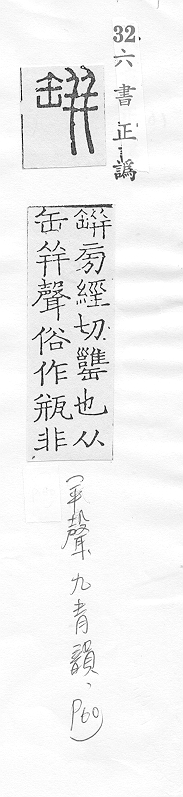 32.六書正譌
缾
缾旁經切罌也从
缶幷聲俗作瓶非
(平聲九青韻、P60)